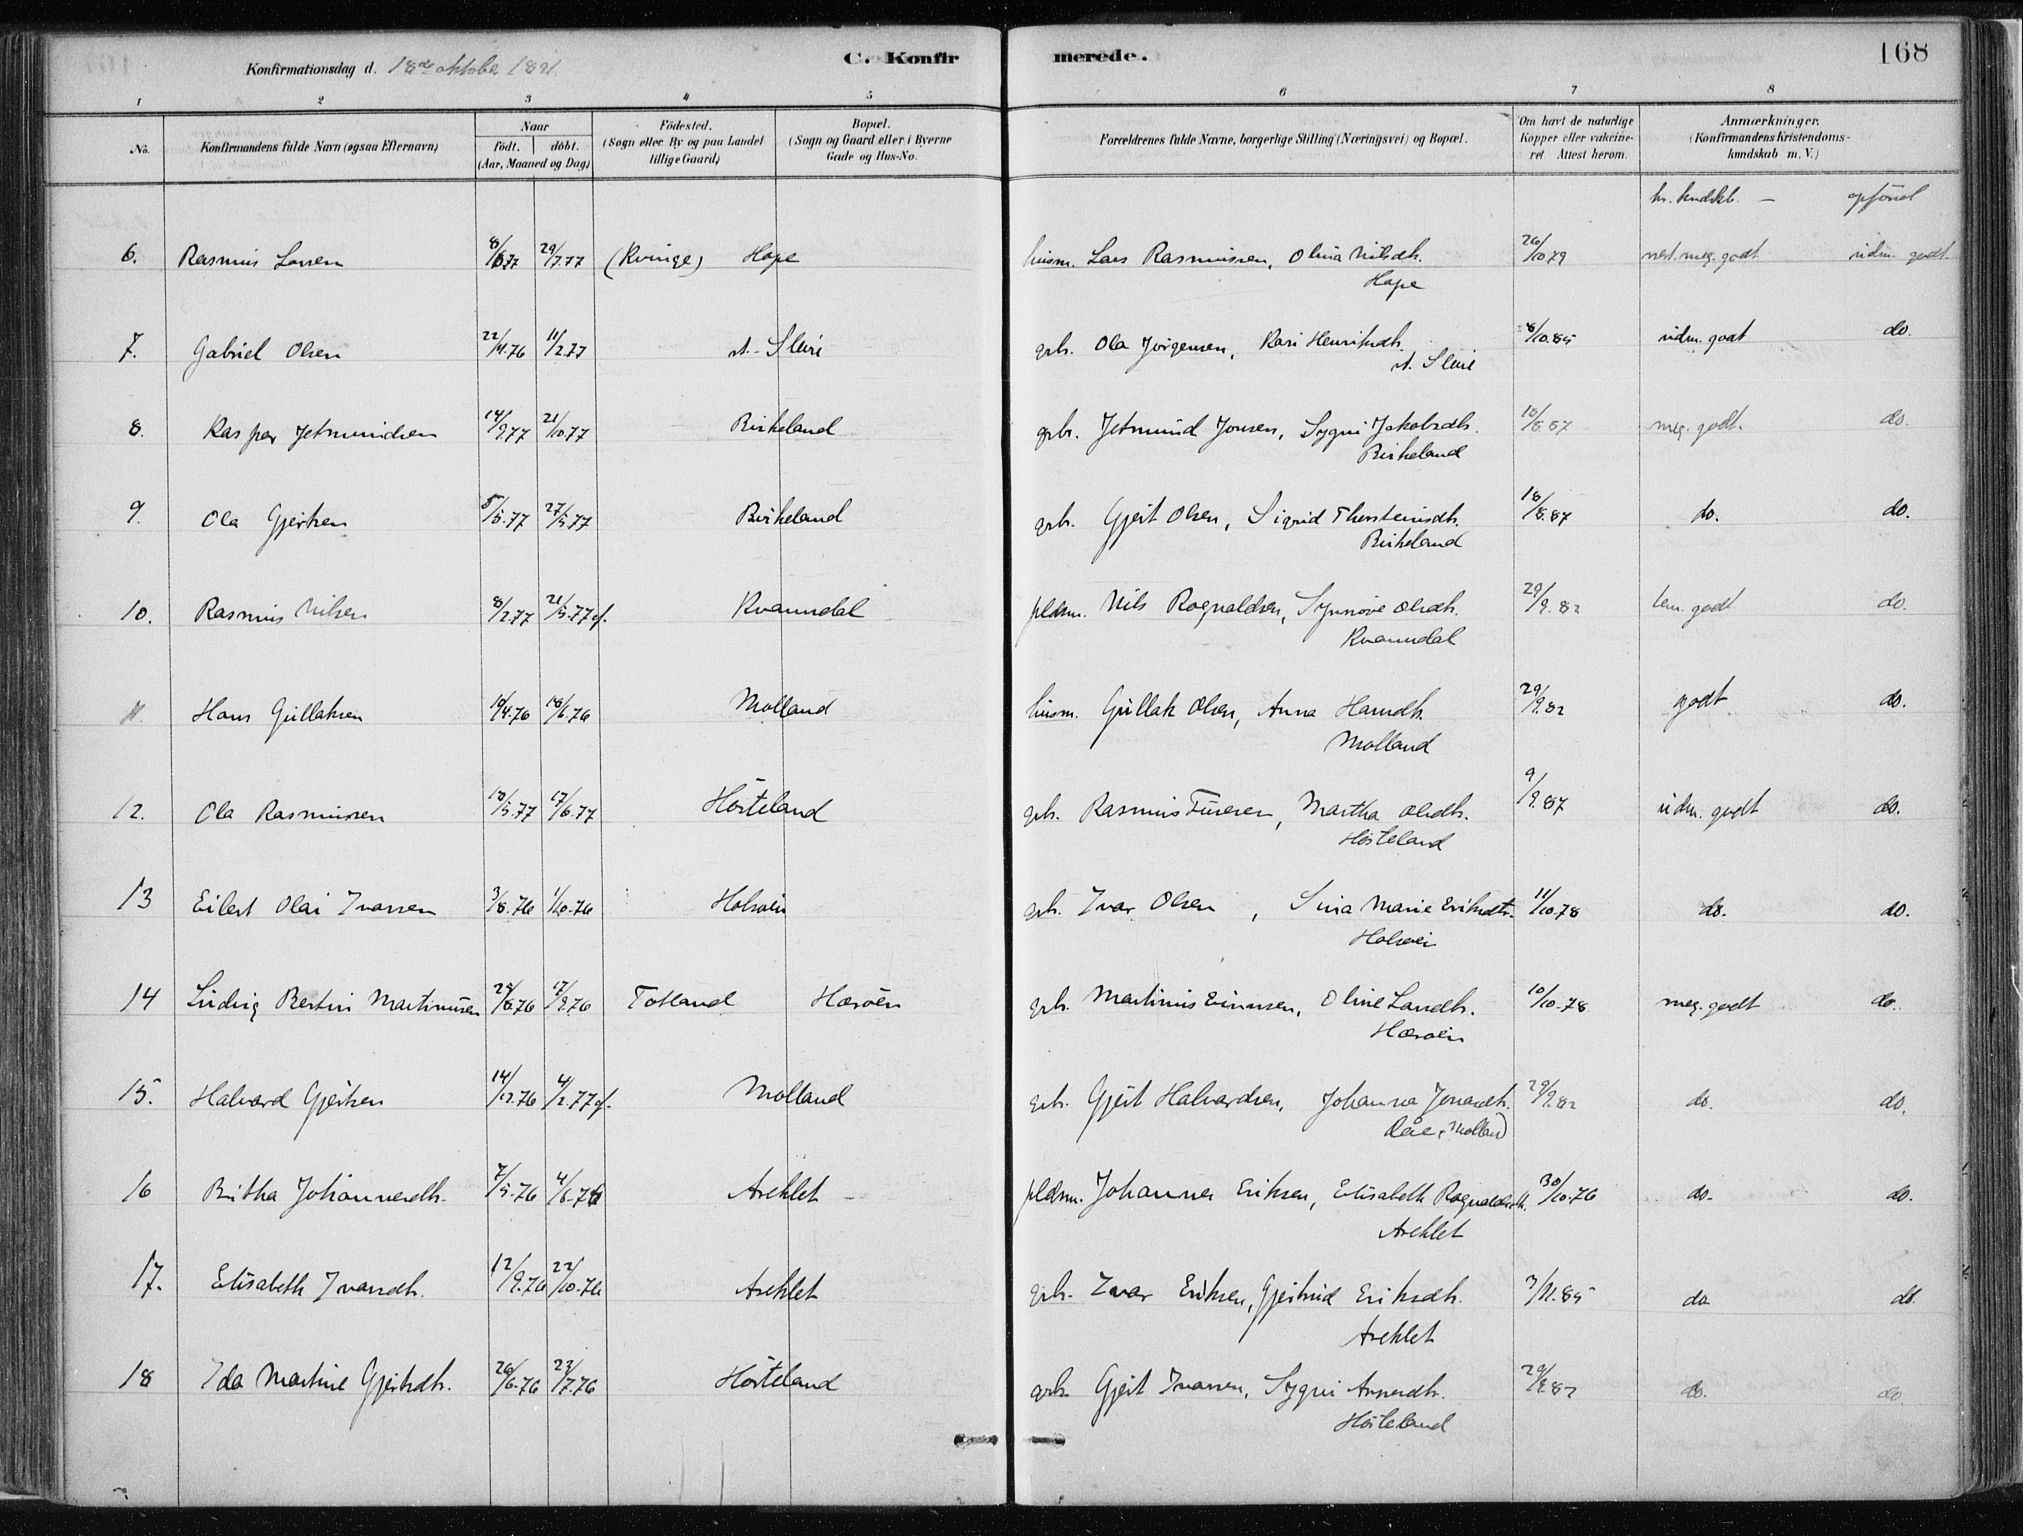 Konfirmationsdag d. 18de oktober 1891. C. Konfirmerede. 168
1 2 3 4 5 6 7 8
No. Konfirmandens fulde Navn (ogsaa Efternavn) Naar født. døbt. (Aar, Maaned og Dag) Fødested. (Sogn eller By og paa Landet tillige Gaard) Bopæl. (Sogn og Gaard eller i Byerne Gade og Hus-No. Forældrenes fulde Navne, borgerlige Stilling (Næringsvei) og Bopæl. Om havt de naturlige Kopper eller vakcineret Attest herom. Anmærkninger. (Konfirmandens Kristendomskundskab m. V.)
kr. kndskb. — opförsel
6. Rasmus Larsen 29/7.77 (Kvinge) Hope husm. Lars Rasmussen, Olina Nilsdtr. 26/10.79 nest. meg. godt udm. godt
Hope
7. Gabriel Olsen 22/11.76 11/2.77 Sleire grb. Ola Jørgensen, Kari Henriksdtr. 8/10.85 udm. godt do.
Sleire
8. Kasper Jetmundsen 14/9.77 21/10.77 Birkeland grb. Jetmund Jonsen, Sygni Jakobsdtr. 18/8.87 meg. godt. do.
Birkeland
9. Ola Gjertsen 5/5.77 27/5.77 Birkeland grb. Gjert Olsen, Sigrid Thorsteinsdtr. 18/8.87 do. do.
Birkeland
10. Rasmus Nilsen 8/2.77 21/5.77 Kvamsdal pldsm. Nils Rognaldsen, Synnøve Olsdtr. 29/9.82 tem. godt do.
Kvamsdal
11. Hans Gullaksen 10/4.76 18/6.76 Molland husm. Gullak Olsen, Anna Hansdtr. 29/9.82 godt do.
Molland
12. Ola Rasmussen 10/5.77 17/6.77 Hösteland grb. Rasmus, Martha Olsdtr. 9/9.87 udm. godt do.
Hösteland
13 Eilert Olai Ivarsen 3/8.76 1/10.76 grb. Ivar Olsen, Marie Eriksdtr. 11/10.78 do. do.
14 Ludvig Bertin Martinusen 28/8.76 17/9.76 Totland Hærøen grb. Martinus Einarsen, Oline Larsdtr. 10/10.78 meg. godt do.
Hærøen
15. Halvard Gjertsen 14/12.76 4/2.77 Molland grb. Gjert Halvardsen, Johanna Jonasdtr. 29/9.82 do. do.
Molland
16 Britha Johannesdtr. 7/5.76 4/6.76 Areklet pldsm. Johannes Eriksen, Elisabeth Rognaldsdtr. 30/10.76 do. do.
Areklet
17. Elisabeth Ivarsdtr. 12/9.76 22/10.76 Areklet grb. Ivar Eriksen, Gjertrud Eriksdtr. 3/11.85 do do.
Areklet
18 Ida Martine Gjertsdtr. 26/6.76 23/7.76 Hösteland grb. Gjert Ivarsen, Sygni 29/9.82 do. do.
Hösteland